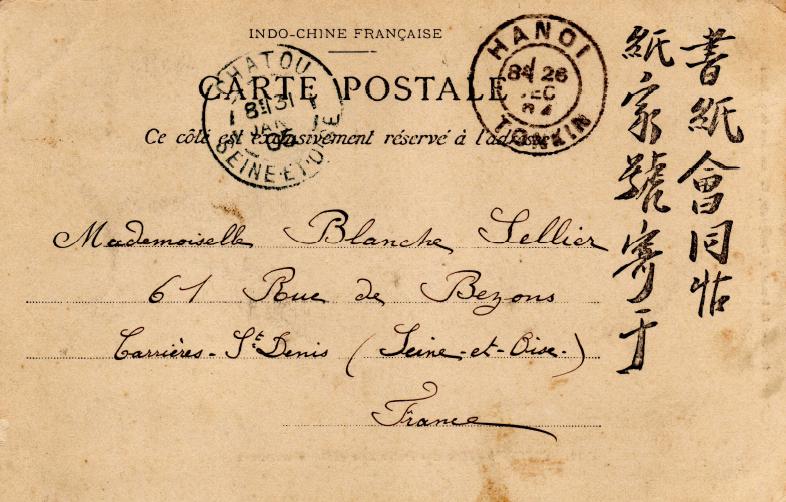 INDO-CHINE FRANÇAISE
CARTE POSTALE
Ce côté est exclusivement réservé à l'adresse
CHATOU
8E 31
JAN
05
SEINE-ET-OISE
HANOI
8E 26
DEC
04
TONKIN
Mademoiselle Blanche Sellier
61 Rue de Bezons
Carrières-St-Denis (Seine-et-Oise-)
France
書紙會同
紙家號寄于